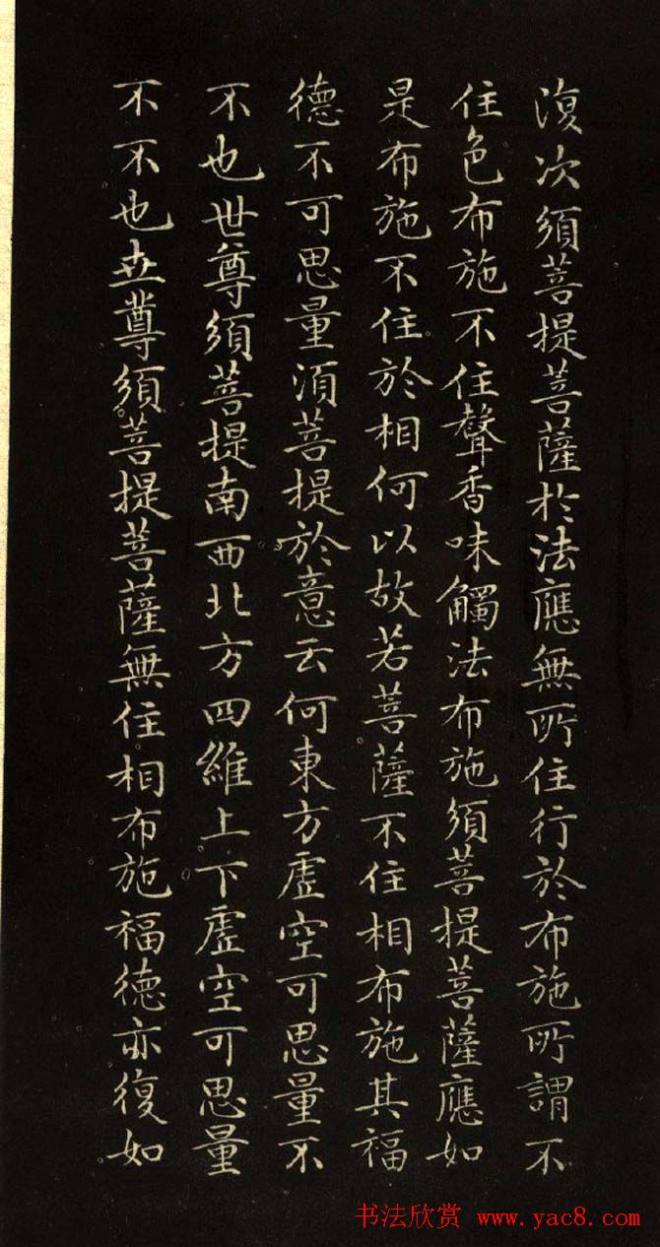 澓次須菩提菩薩於法應無所住行於布施所謂不
住色布施不住聲香味觸法布施須菩提菩薩應如
是布施不住於相何以故若菩薩不住相布施其福
德不可思量須菩提於意云何東方虛空可思量不
不也世尊須菩提南西北方四維上下虛空可思量
不不也世尊須菩提菩薩無住相布施福德亦復如
书法欣赏 www.yac8.com